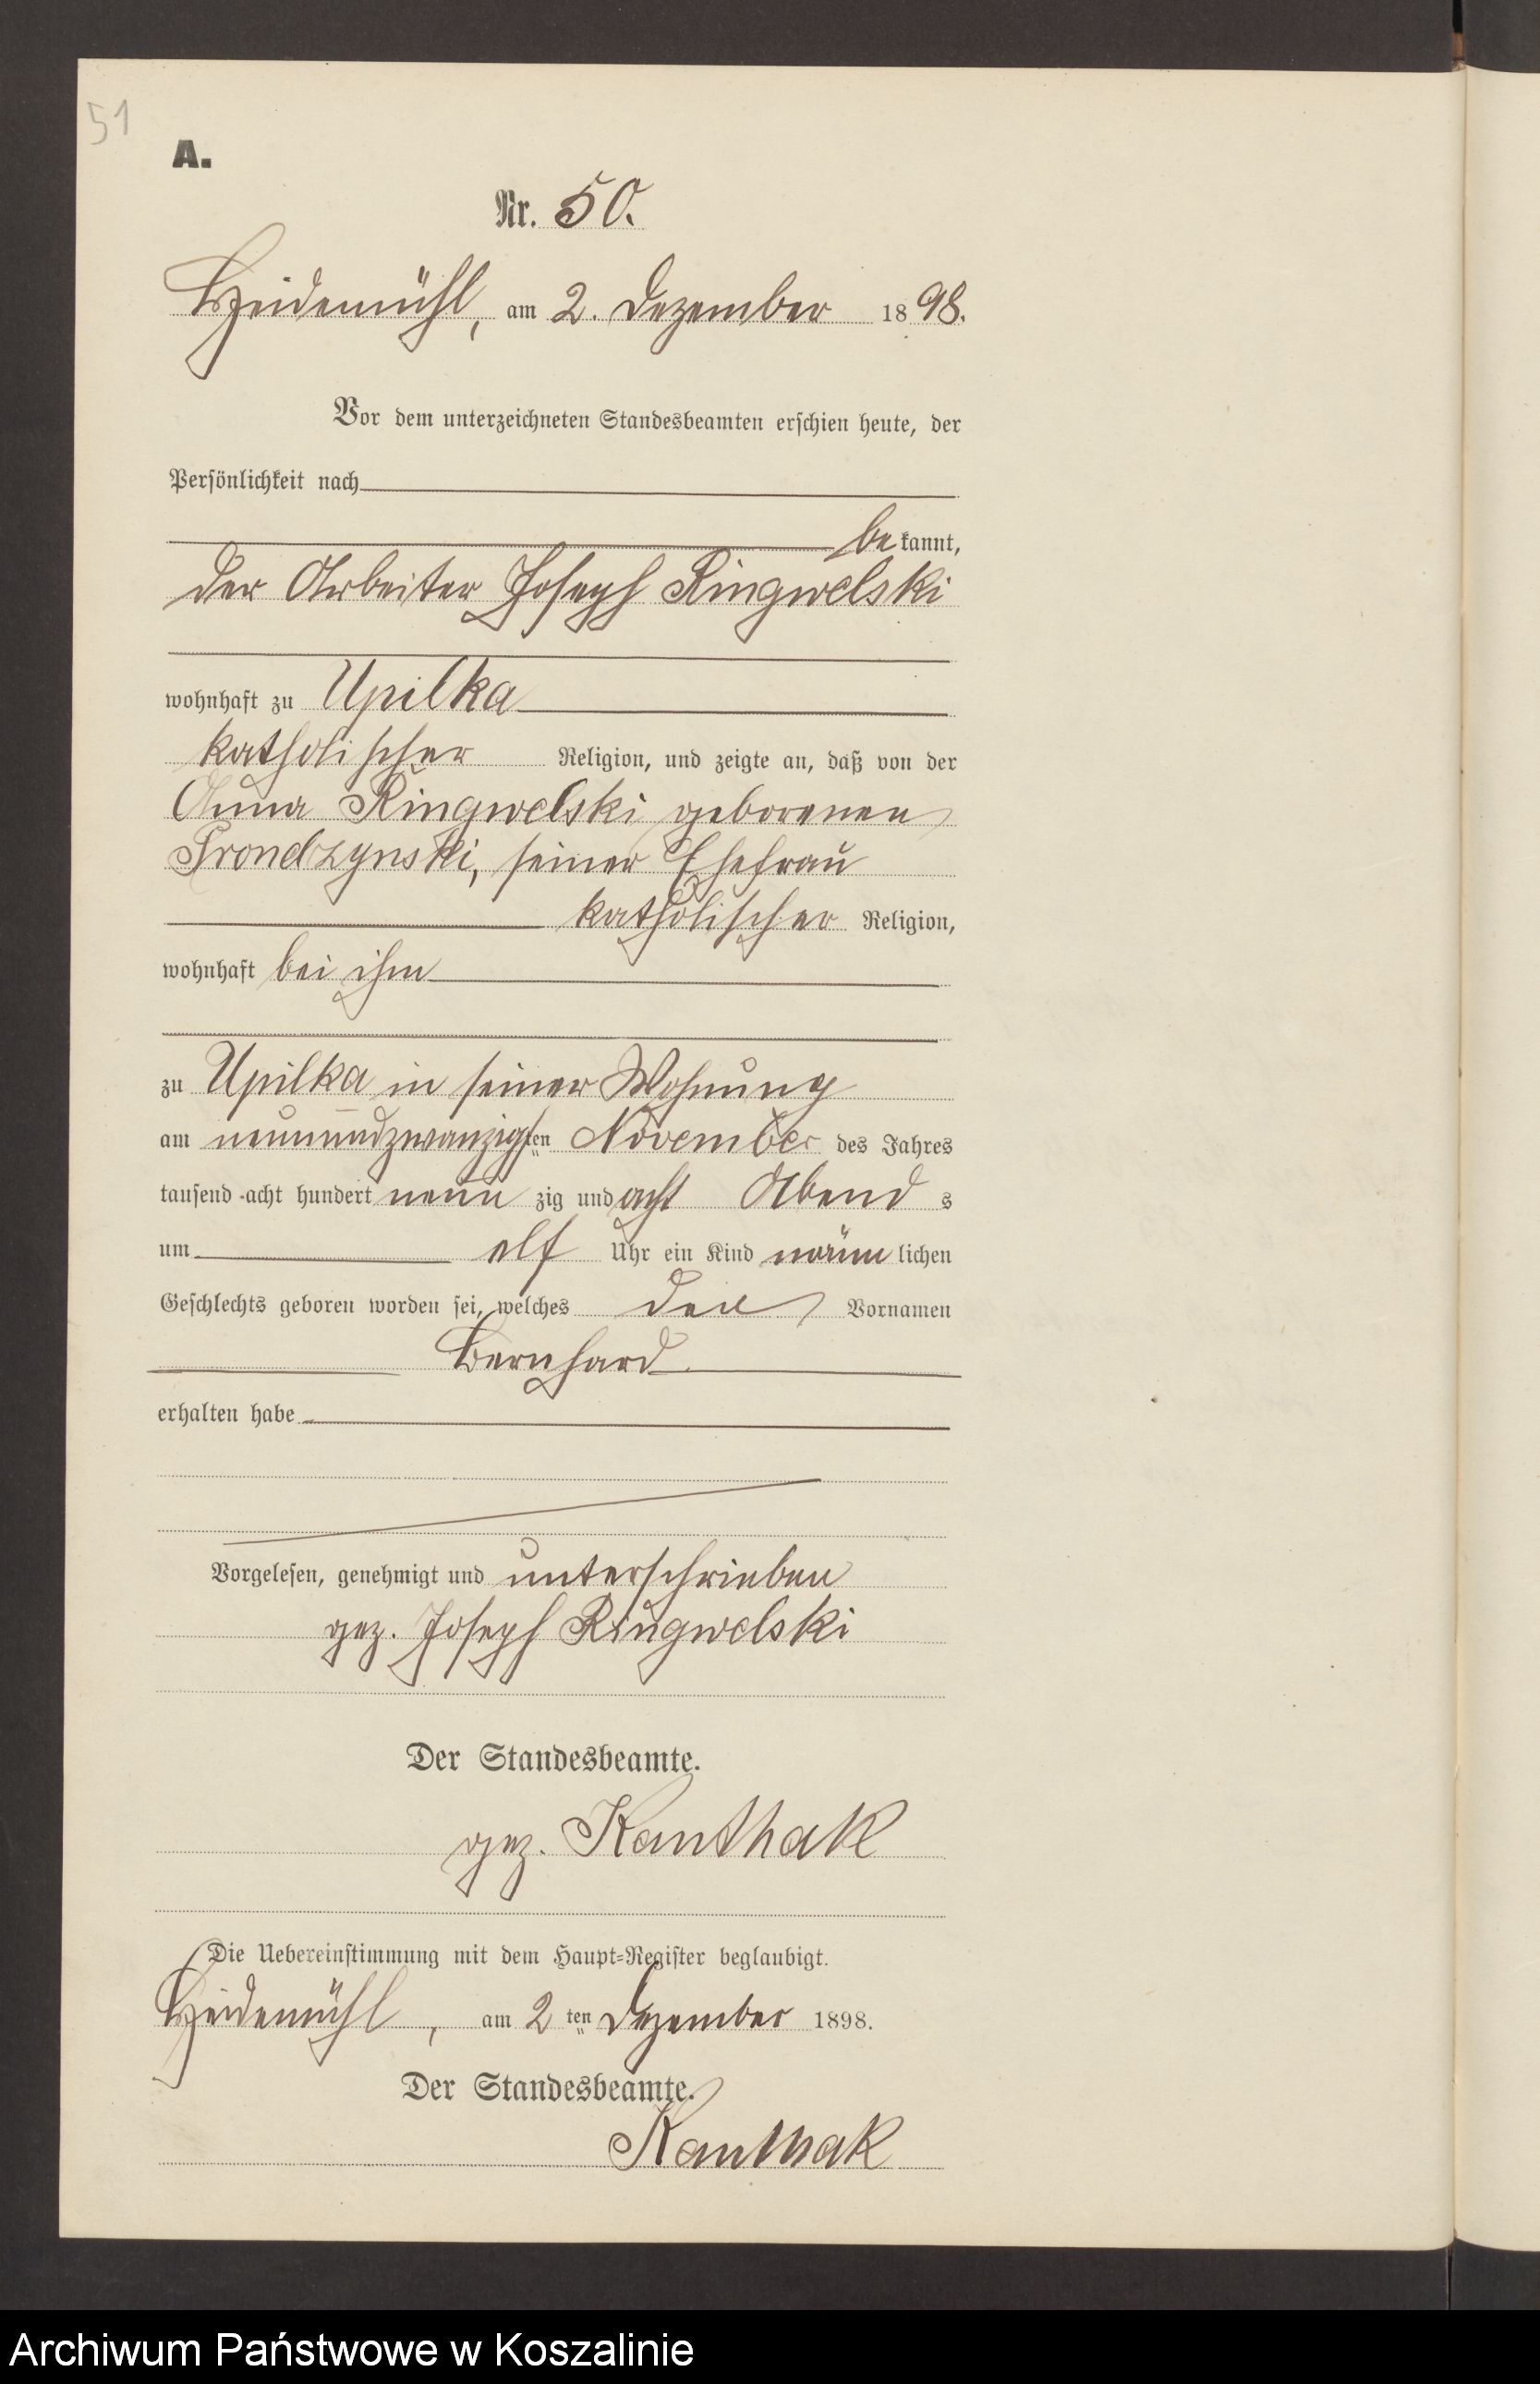 51
A.
Nr. 50.
Heidemühl, am 2. Dezember 1898.
Vor dem unterzeichneten Standesbeamten erschien heute, der
Persönlichkeit nach
be kannt,
der Arbeiter Joseph Ringwelski
wohnhaft zu Upilka
katholischer Religion, und zeigte an, daß von der
Anna Ringwelski geborenen
Prondzynski, seiner Ehefrau
katholischer Religion,
wohnhaft bei ihm
zu Upilka in seiner Wohnung
am neunundzwanzigsten November des Jahres
tausend acht hundert neun zig und acht Abend s
um elf Uhr ein Kind männ lichen
Geschlechts geboren worden sei, welches den Vornamen
Bernhard
erhalten habe
Vorgelesen, genehmigt und unterschrieben
gez. Joseph Ringwelski
Der Standesbeamte.
gez. Kanthak
Die Uebereinstimmung mit dem Haupt=Register beglaubigt.
Heidemühl, am 2 ten Dezember 1898.
Der Standesbeamte.
Kanthak
Archiwum Państwowe w Koszalinie